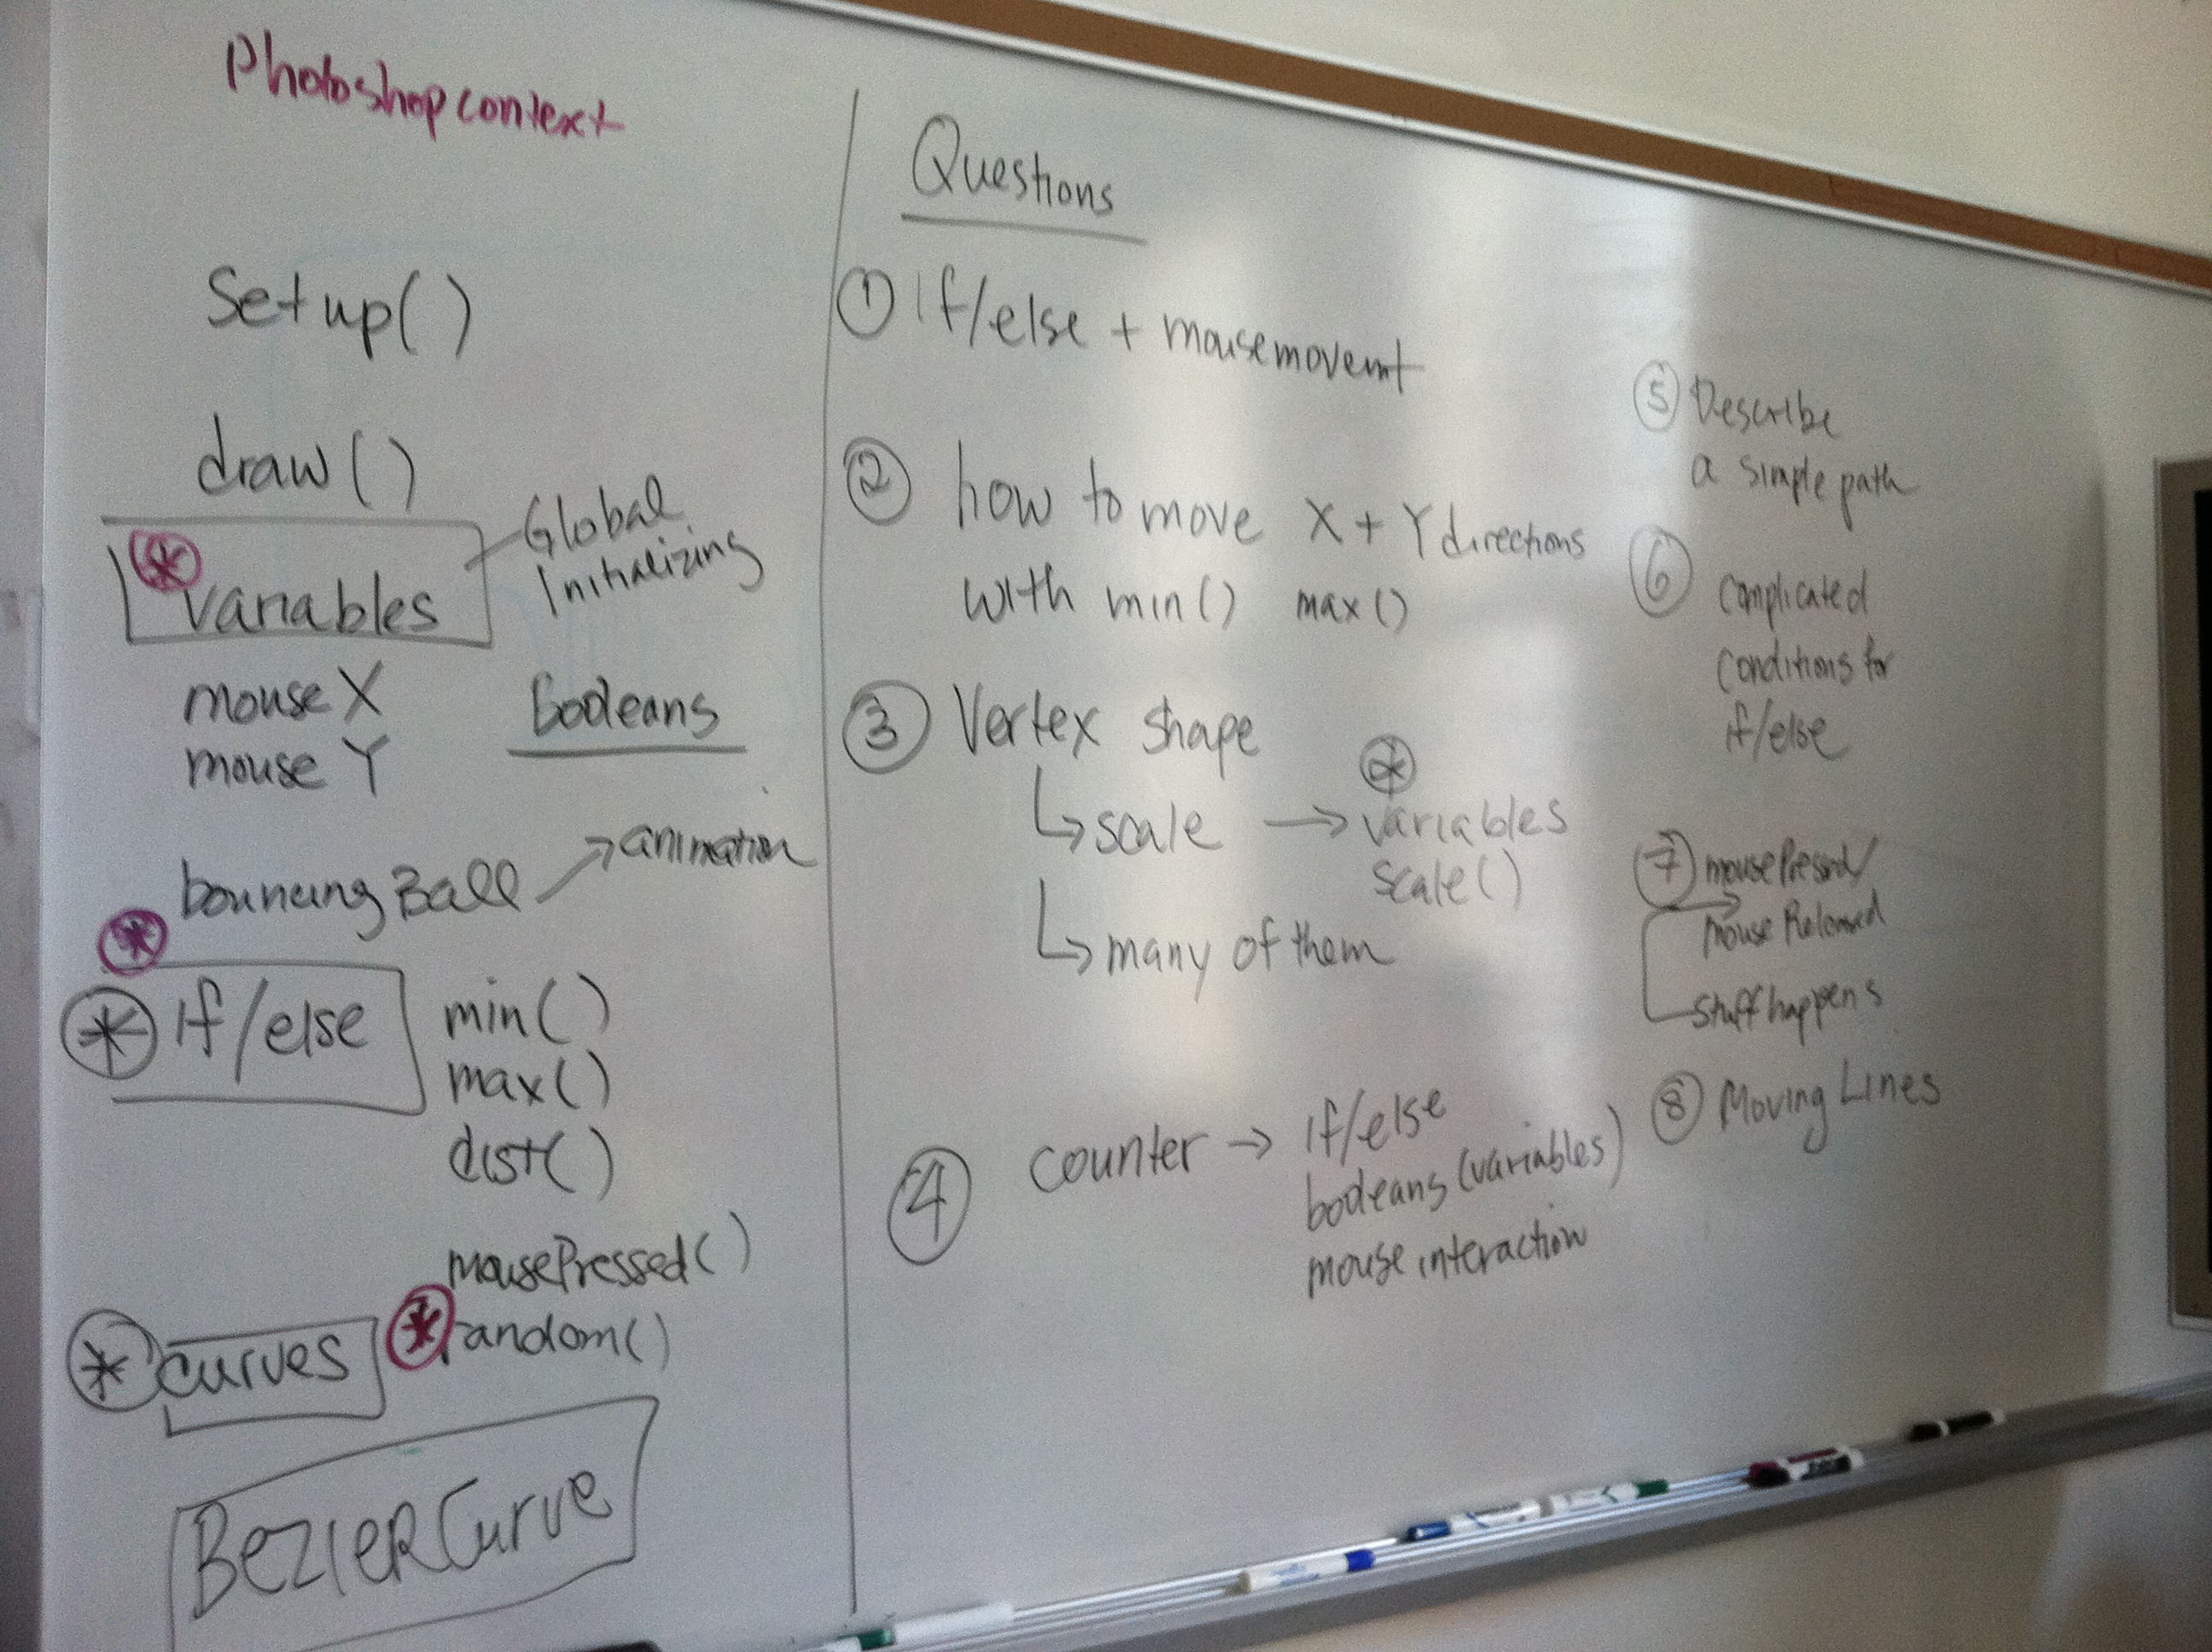 Photoshop context
Setup()
draw()
* variables
Global
Initializing
mouse X
mouse Y
booleans
bouncing Ball → animation
*
* If/else
min()
max()
dist()
mousePressed()
* random()
* curves
BEZIER Curve
Questions
① If/else + mouse movemt
② how to move X + Y directions
with min() max()
③ Vertex shape
↳ scale → variables
*
scale()
↳ many of them
④ counter → if/else
booleans (variables)
mouse interaction
⑤ Describe
a simple path
⑥ complicated
conditions for
if/else
⑦ mousePressed/
mouse Released
stuff happens
⑧ Moving Lines